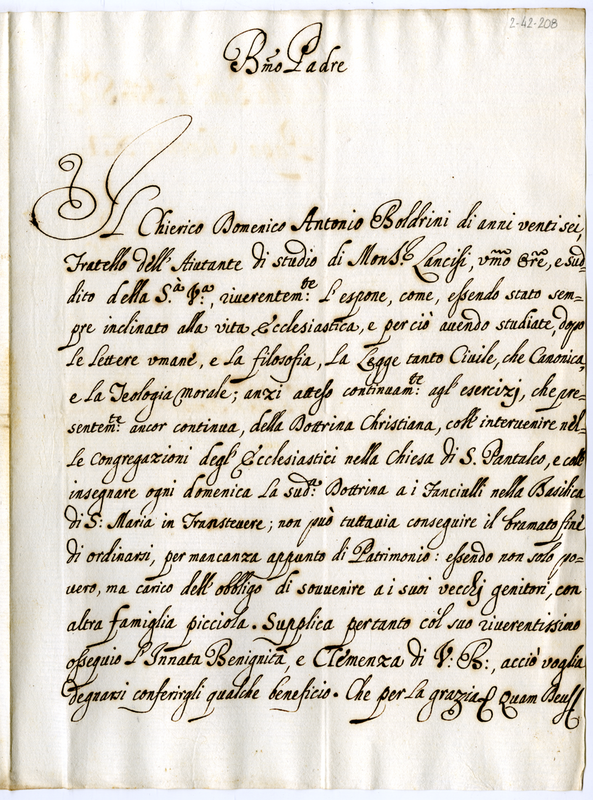 2-42-208
Bmo Padre
Il Chierico Domenico Antonio Boldrini di anni ventisei,
Fratello dell'Aiutante di studio di Monsr. Lancisi, vmo Ore, e sud=
dito della S.à V.a, riverentemte. L'espone, come, essendo stato sem=
pre inclinato alla vita Ecclesiastica, e perciò auendo studiate, dopo
le lettere vmane, e la filosofia, la Legge tanto Ciuile, che Canonica,
e la Teologia morale; anzi atteso continuamte. agl'esercizj, che pre=
sentemte. ancor continua, della Dottrina Christiana, coll'intervenire nel=
le Congregazioni degl'Ecclesiastici nella Chiesa di S. Pantaleo, e coll'
insegnare ogni domenica la suda. Dottrina a i Fanciulli nella Basilica
di S: Maria in Transtevere; non può tuttavia conseguire il bramato fine
di ordinarsi, per mancanza appunto di Patrimonio: essendo non solo po=
uero, ma carico dell'obbligo di souuenire a i suoi vecchj genitori, con
altra famiglia picciola. Supplica pertanto col suo riuerentissimo
ossequio L'Innata Benignità, e Clemenza di V: B:, acciò voglia
degnarsi conferirgli qualche beneficio. Che per la grazia Quam Deus